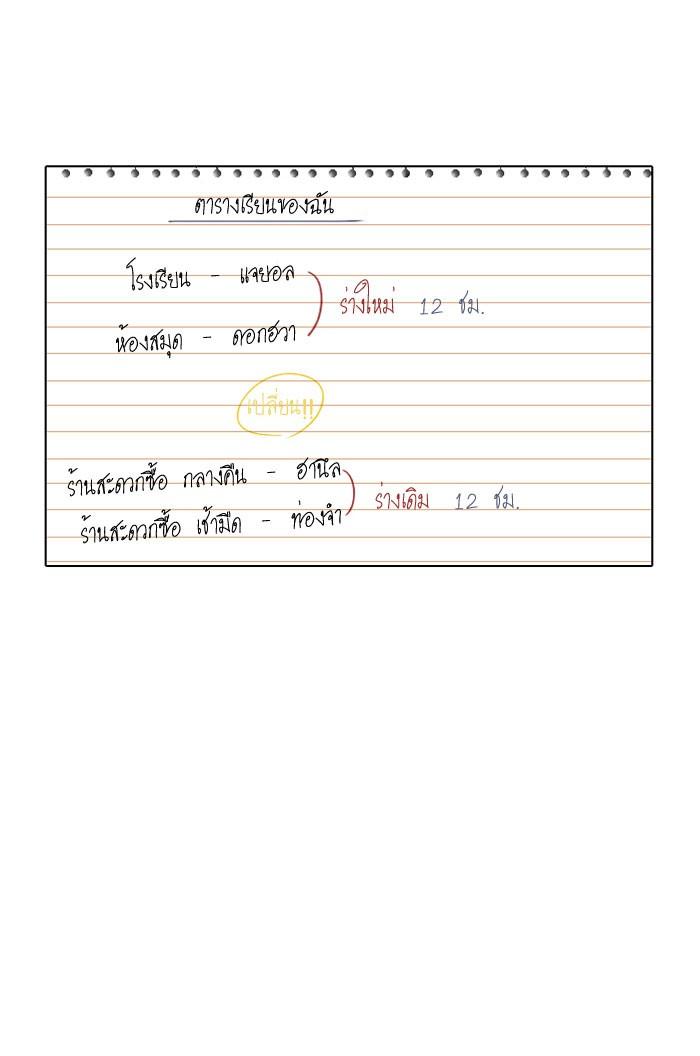 ตารางเรียนของฉัน
โรงเรียน - แจยอล
ร่างใหม่ 12 ชม.
ห้องสมุด - ดอกฮวา
เปลี่ยน!!
ร้านสะดวกซื้อ กลางคืน - ฮานึล
ร่างเดิม 12 ชม.
ร้านสะดวกซื้อ เช้ามืด - ท่องจำ